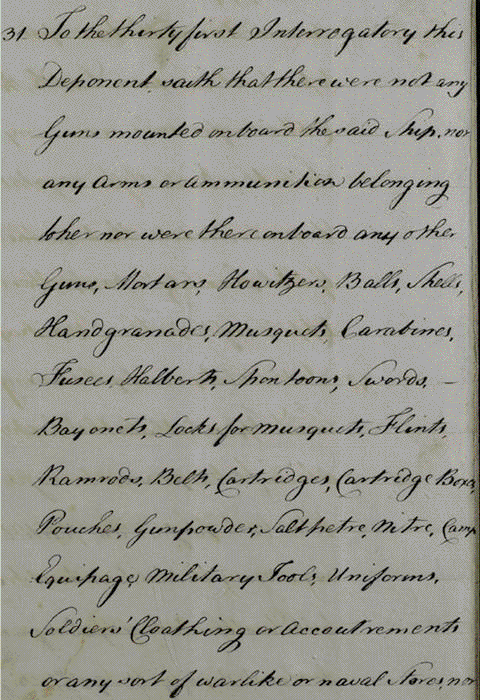 31 To the thirty first Interrogatory this
Deponent saith that there were not any
Guns mounted on board the said Ship, nor
any Arms or Ammunition belonging
to her nor were there on board any other
Guns, Mortars, Howitzers, Balls, Shells,
Handgranades, Musquets, Carabines,
Fusees, Halberts, Spontoons, Swords, —
Bayonets, Locks for Musquets, Flints,
Ramrods, Belts, Cartridges, Cartridge Boxes,
Pouches, Gunpowder, Saltpetre, Nitre, Camp
Equipage, Military Tools, Uniforms,
Soldiers' Cloathing or Accoutrements
or any sort of warlike or naval Stores, nor